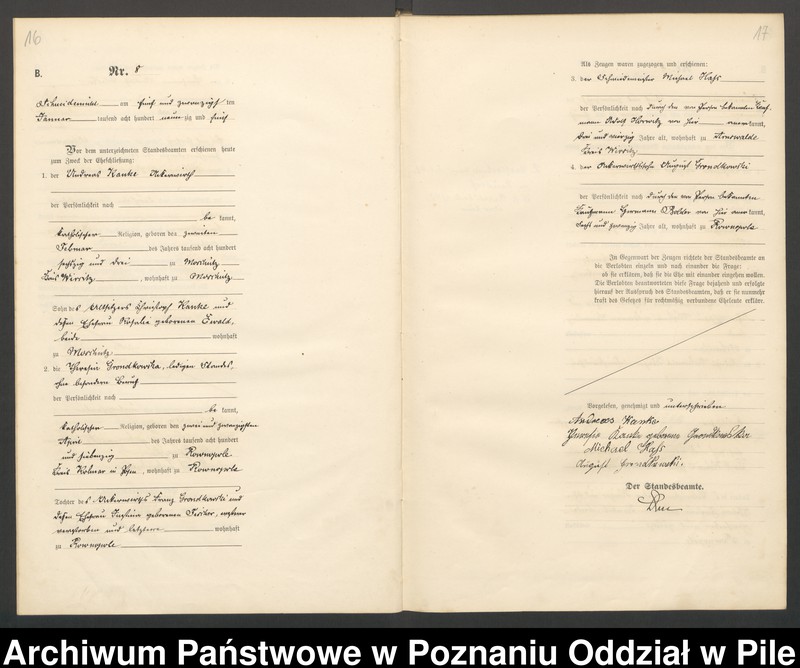 16
B. Nr. 8
Schneidemühl am fünf und zwanzigsten
Januar tausend acht hundert neunzig und fünf
Vor dem unterzeichneten Standesbeamten erschienen heute
zum Zweck der Eheschließung:
1. der Andreas Kanke Ackerwirth
der Persönlichkeit nach
be kannt,
katholischer Religion, geboren den zweiten
Februar des Jahres tausend acht hundert
sechzig und drei zu
Kreis Wirsitz, wohnhaft zu
Sohn des Christoph Kanke und
dessen Ehefrau Rosalie geborenen Ewald,
beide wohnhaft
zu
2. die Theresia Grondkowska, ledigen Standes,
ohne besonderen Beruf
der Persönlichkeit nach
be kannt,
katholischer Religion, geboren den zwei und zwanzigsten
April des Jahres tausend acht hundert
und siebenzig zu Rownopole
Kreis Kolmar in Posen, wohnhaft zu Rownopole
Tochter des Ackerwirths Franz Grondkowski und
dessen Ehefrau geborenen
verstorben und letztere wohnhaft
zu Rownopole
17
Als Zeugen waren zugezogen und erschienen:
3. der Schmiedemeister Michael Hass
der Persönlichkeit nach durch den von Person bekannten Kauf-
mann Adolf Horwitz von hier anerkannt,
und vierzig Jahre alt, wohnhaft zu
Kreis Wirsitz
4. der August Grondkowski
der Persönlichkeit nach durch den von Person bekannten
Kaufmann Hermann von hier anerkannt,
sechs und zwanzig Jahre alt, wohnhaft zu Rownopole
In Gegenwart der Zeugen richtete der Standesbeamte an
die Verlobten einzeln und nach einander die Frage:
ob sie erklären, daß sie die Ehe mit einander eingehen wollen.
Die Verlobten beantworteten diese Frage bejahend und erfolgte
hierauf der Ausspruch des Standesbeamten, daß er sie nunmehr
kraft des Gesetzes für rechtmäßig verbundene Eheleute erkläre.
Vorgelesen, genehmigt und unterschrieben
Andreas Kanke
Theresia Kanke geborene Grondkowska
Michael Hass
August Grondkowski.
Der Standesbeamte.
Archiwum Państwowe w Poznaniu Oddział w Pile